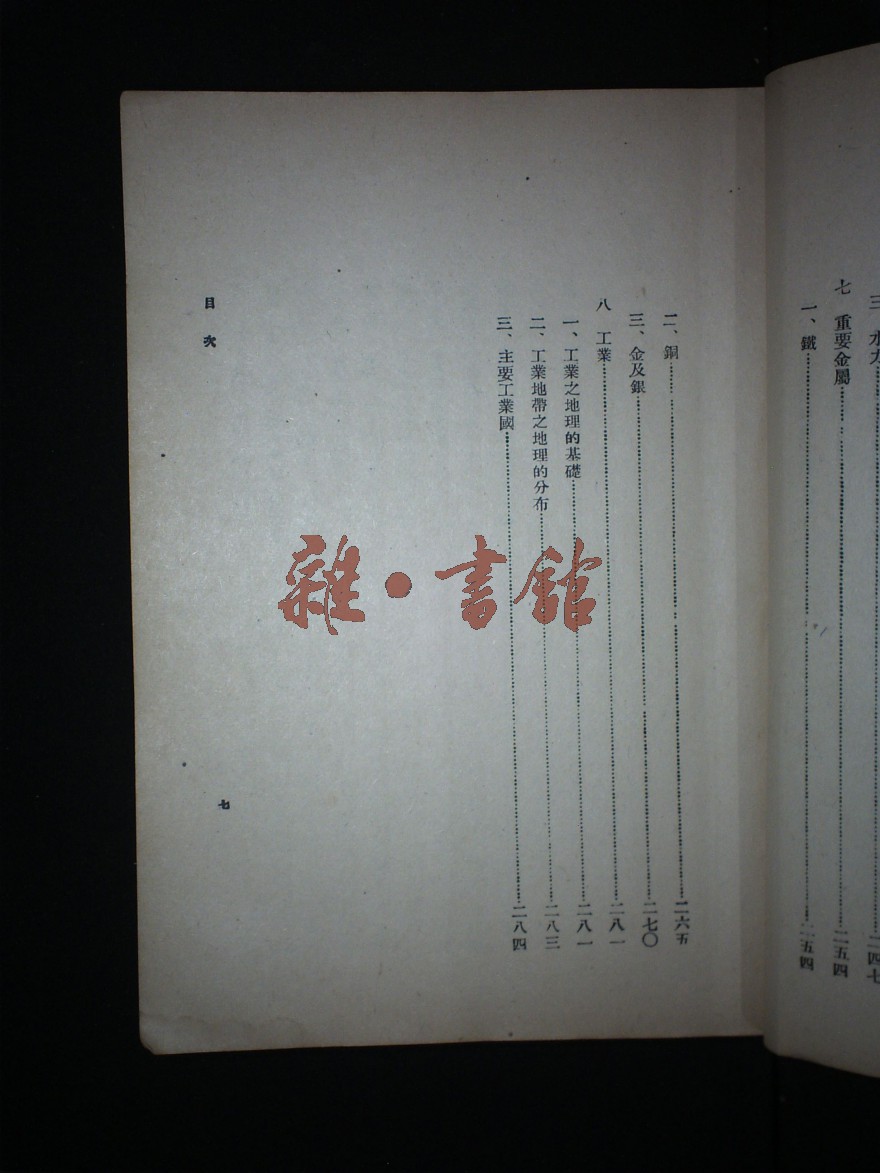 三、水力……二四七
七 重要金屬……二五四
一、鐵……二五四
二、銅……二六五
三、金及銀……二七〇
八 工業……二八一
一、工業之地理的基礎……二八一
二、工業地帶之地理的分布……二八三
三、主要工業國……二八四
目次
七
雜·書館